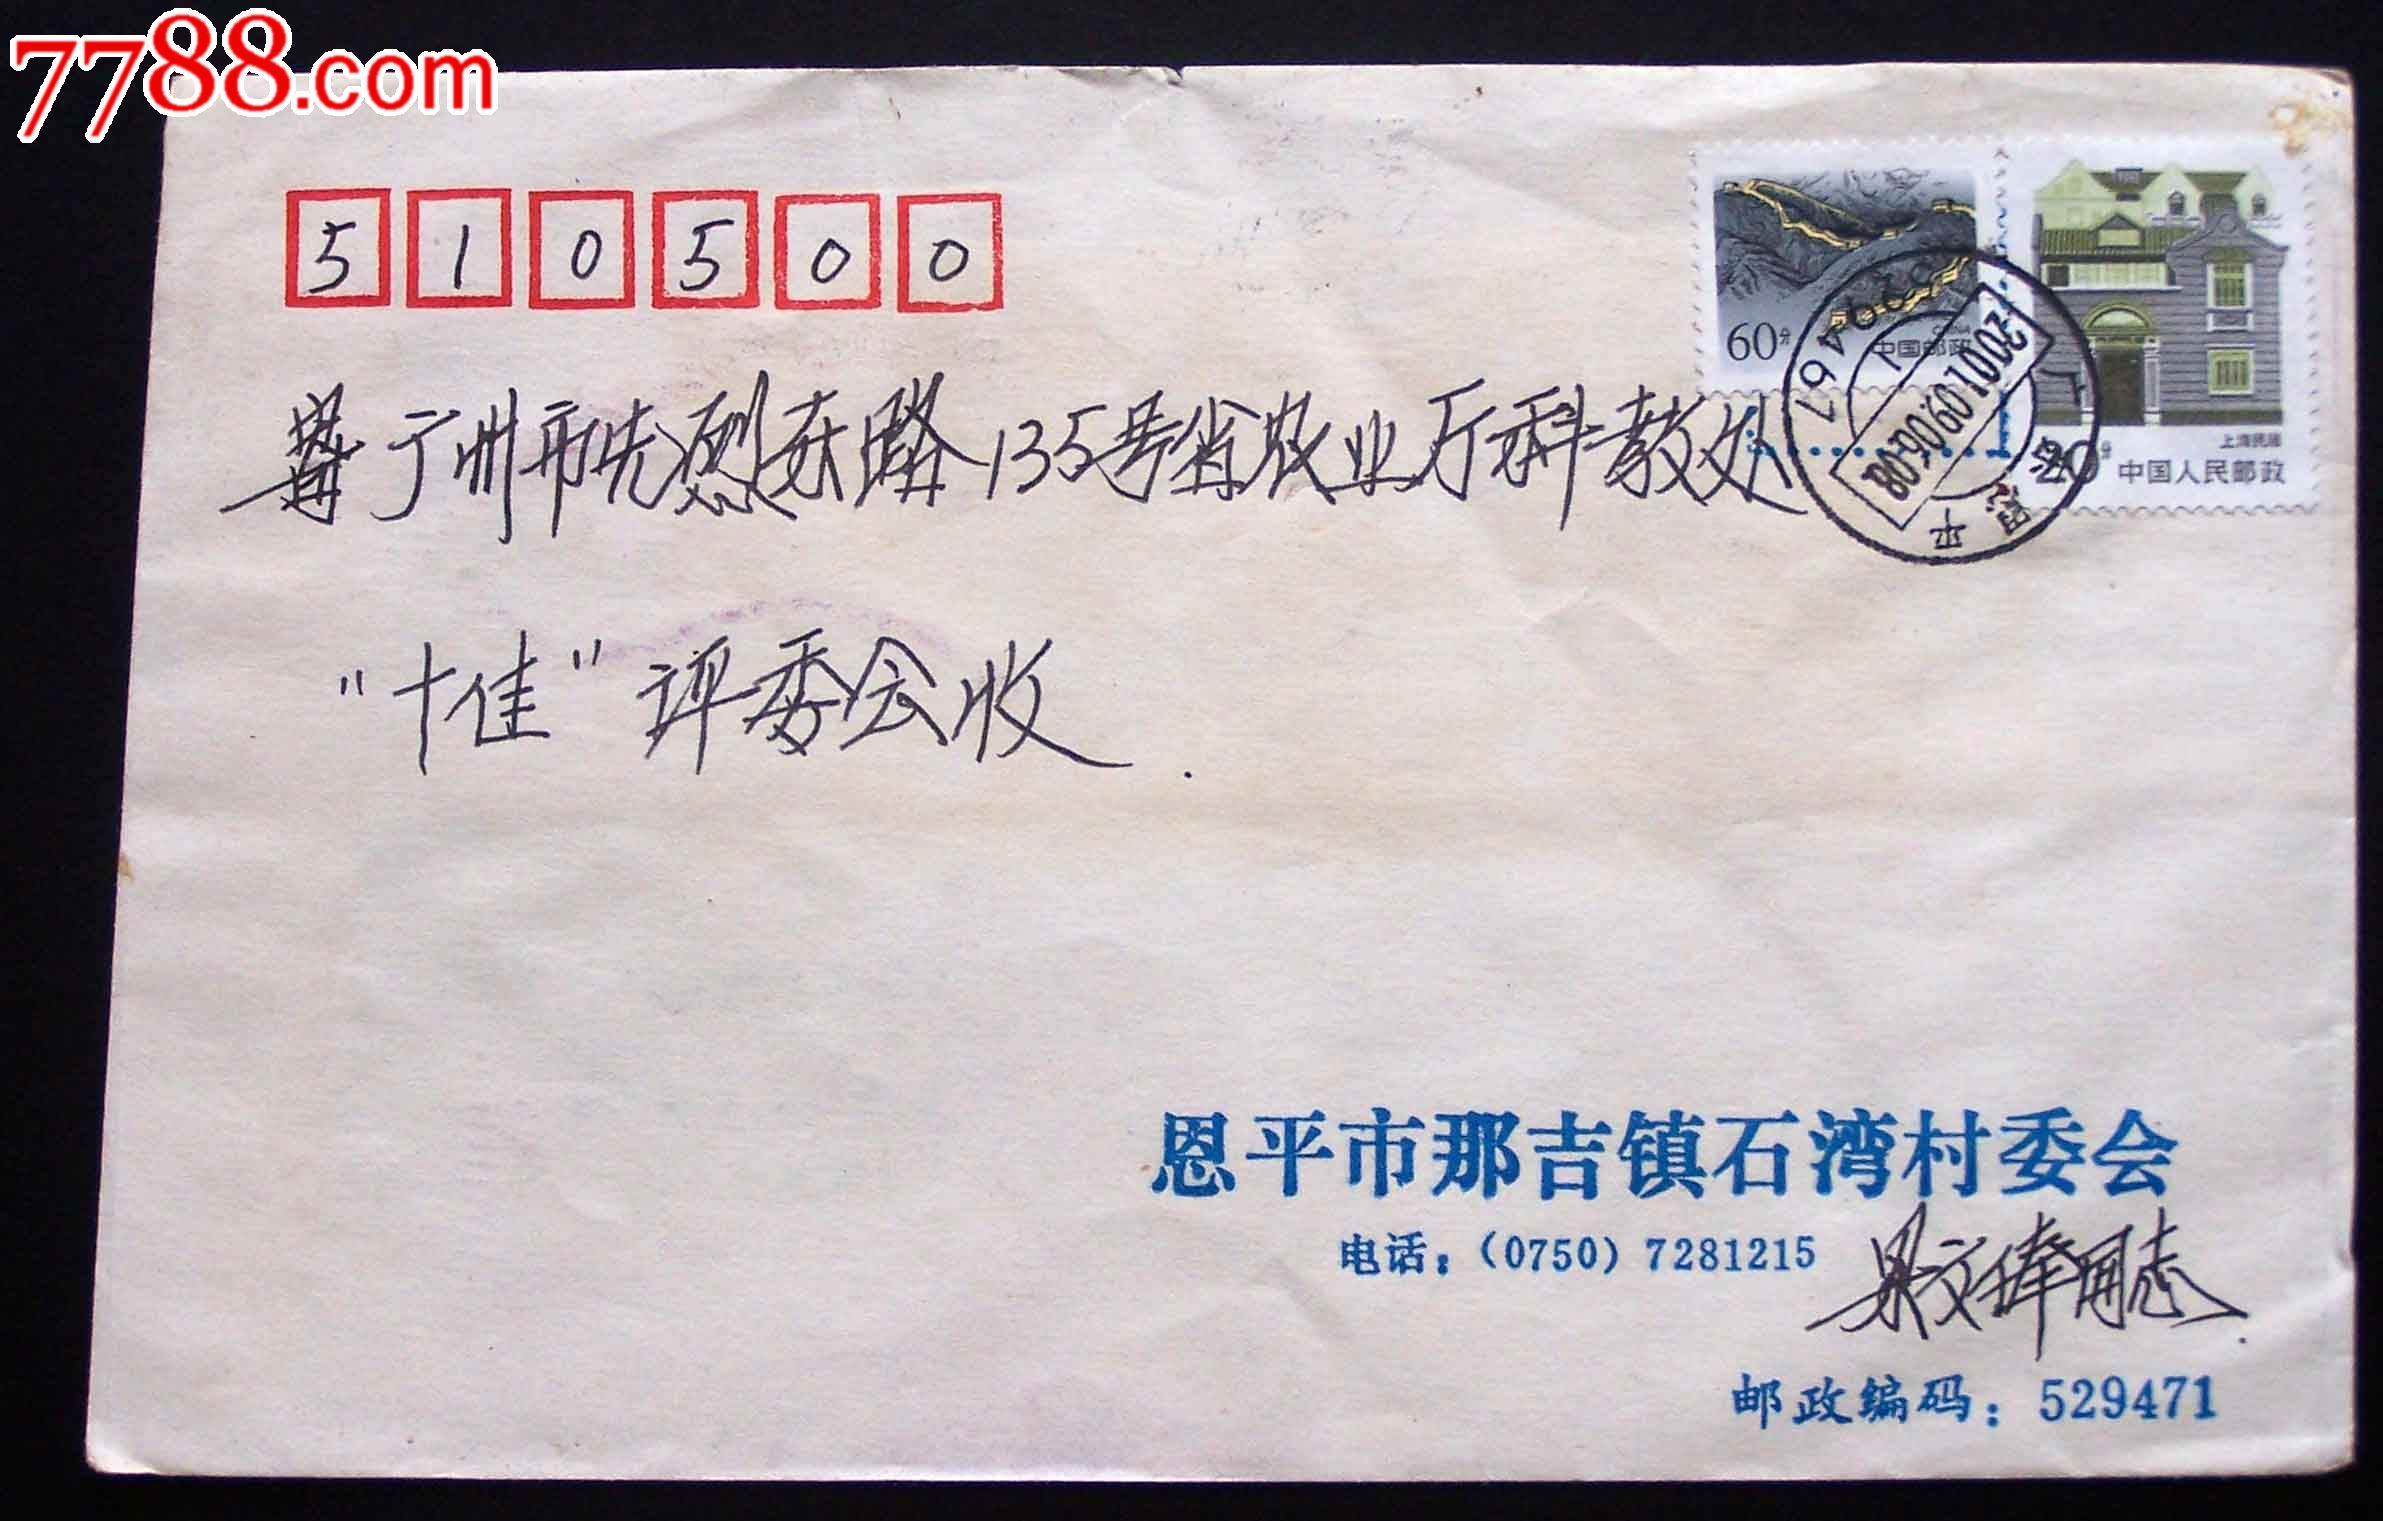 7788.com
5 1 0 5 0 0
60分
中国邮政
上海民居
中国人民邮政
2001.09.06.08
广州市先烈东路135号省农业厅科教处
"十佳"评委会收.
恩平市那吉镇石湾村委会
电话：(0750) 7281215
文 同志.
邮政编码：529471